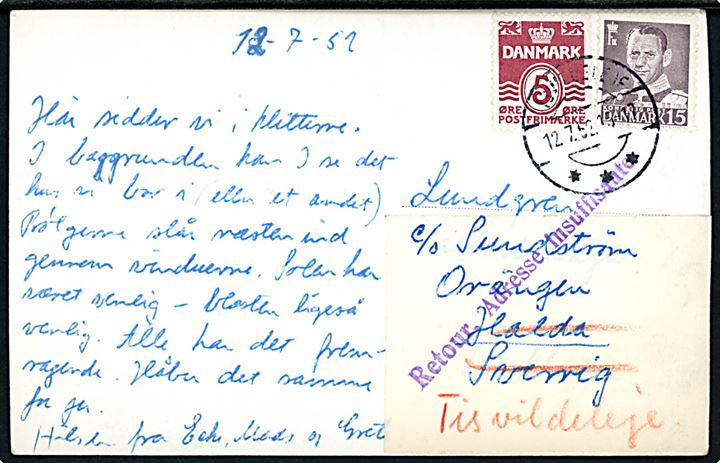 12-7-52
Hår sidder vi i klitterne.
I baggrunden kan I se det
hus vi bor i (eller et andet)
Bølgerne slår næsten ind
gennem vinduerne. Solen har
været venlig – blæsten ligeså
venlig. Alle har det frem-
ragende. Håber det samme
for jer.
Hilsen fra Mads og Grete
DANMARK
5
ØRE ØRE
POSTFRIMÆRKE
DANMARK 15
12.7.52
Lundgren
c/o Sundström
Orängen
Halda
Sverrig
Tisvildeleje
Retour - Adresse insuffisante